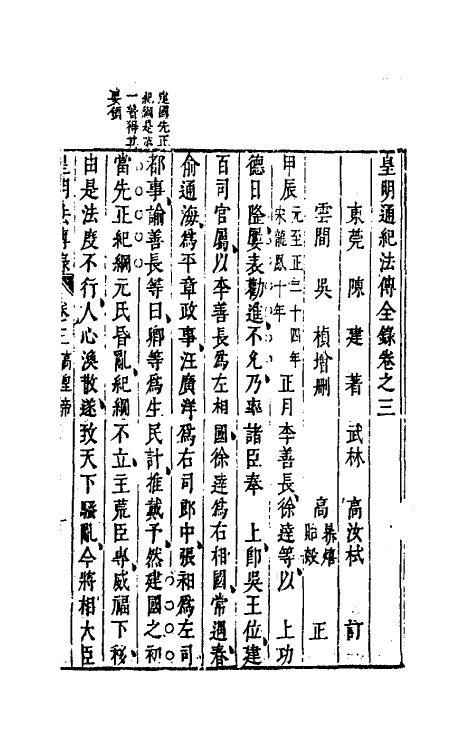 皇明通紀法傳全錄卷之三
東莞 陳 建 著 武林 高汝栻 訂
雲間 吳 楨 增刪 高 正
甲辰 元至正二十四年 宋龍鳳十年 正月李善長徐達等以 上功
德日隆屢表勸進不允乃率諸臣奉 上即吳王位建
百司官屬以李善長為左相國徐達為右相國常遇春
俞通海為平章政事汪廣洋為右司郎中張昶為左司
都事諭善長等日卿等為生民計推戴予然建國之初
當先正紀綱元氏昏亂紀綱不立主荒臣專威福下移
由是法度不行人心渙散遂致天下騷亂今將相大臣
建國先正
紀綱是
一著得其
要領
皇明法傳錄 卷三 高皇帝